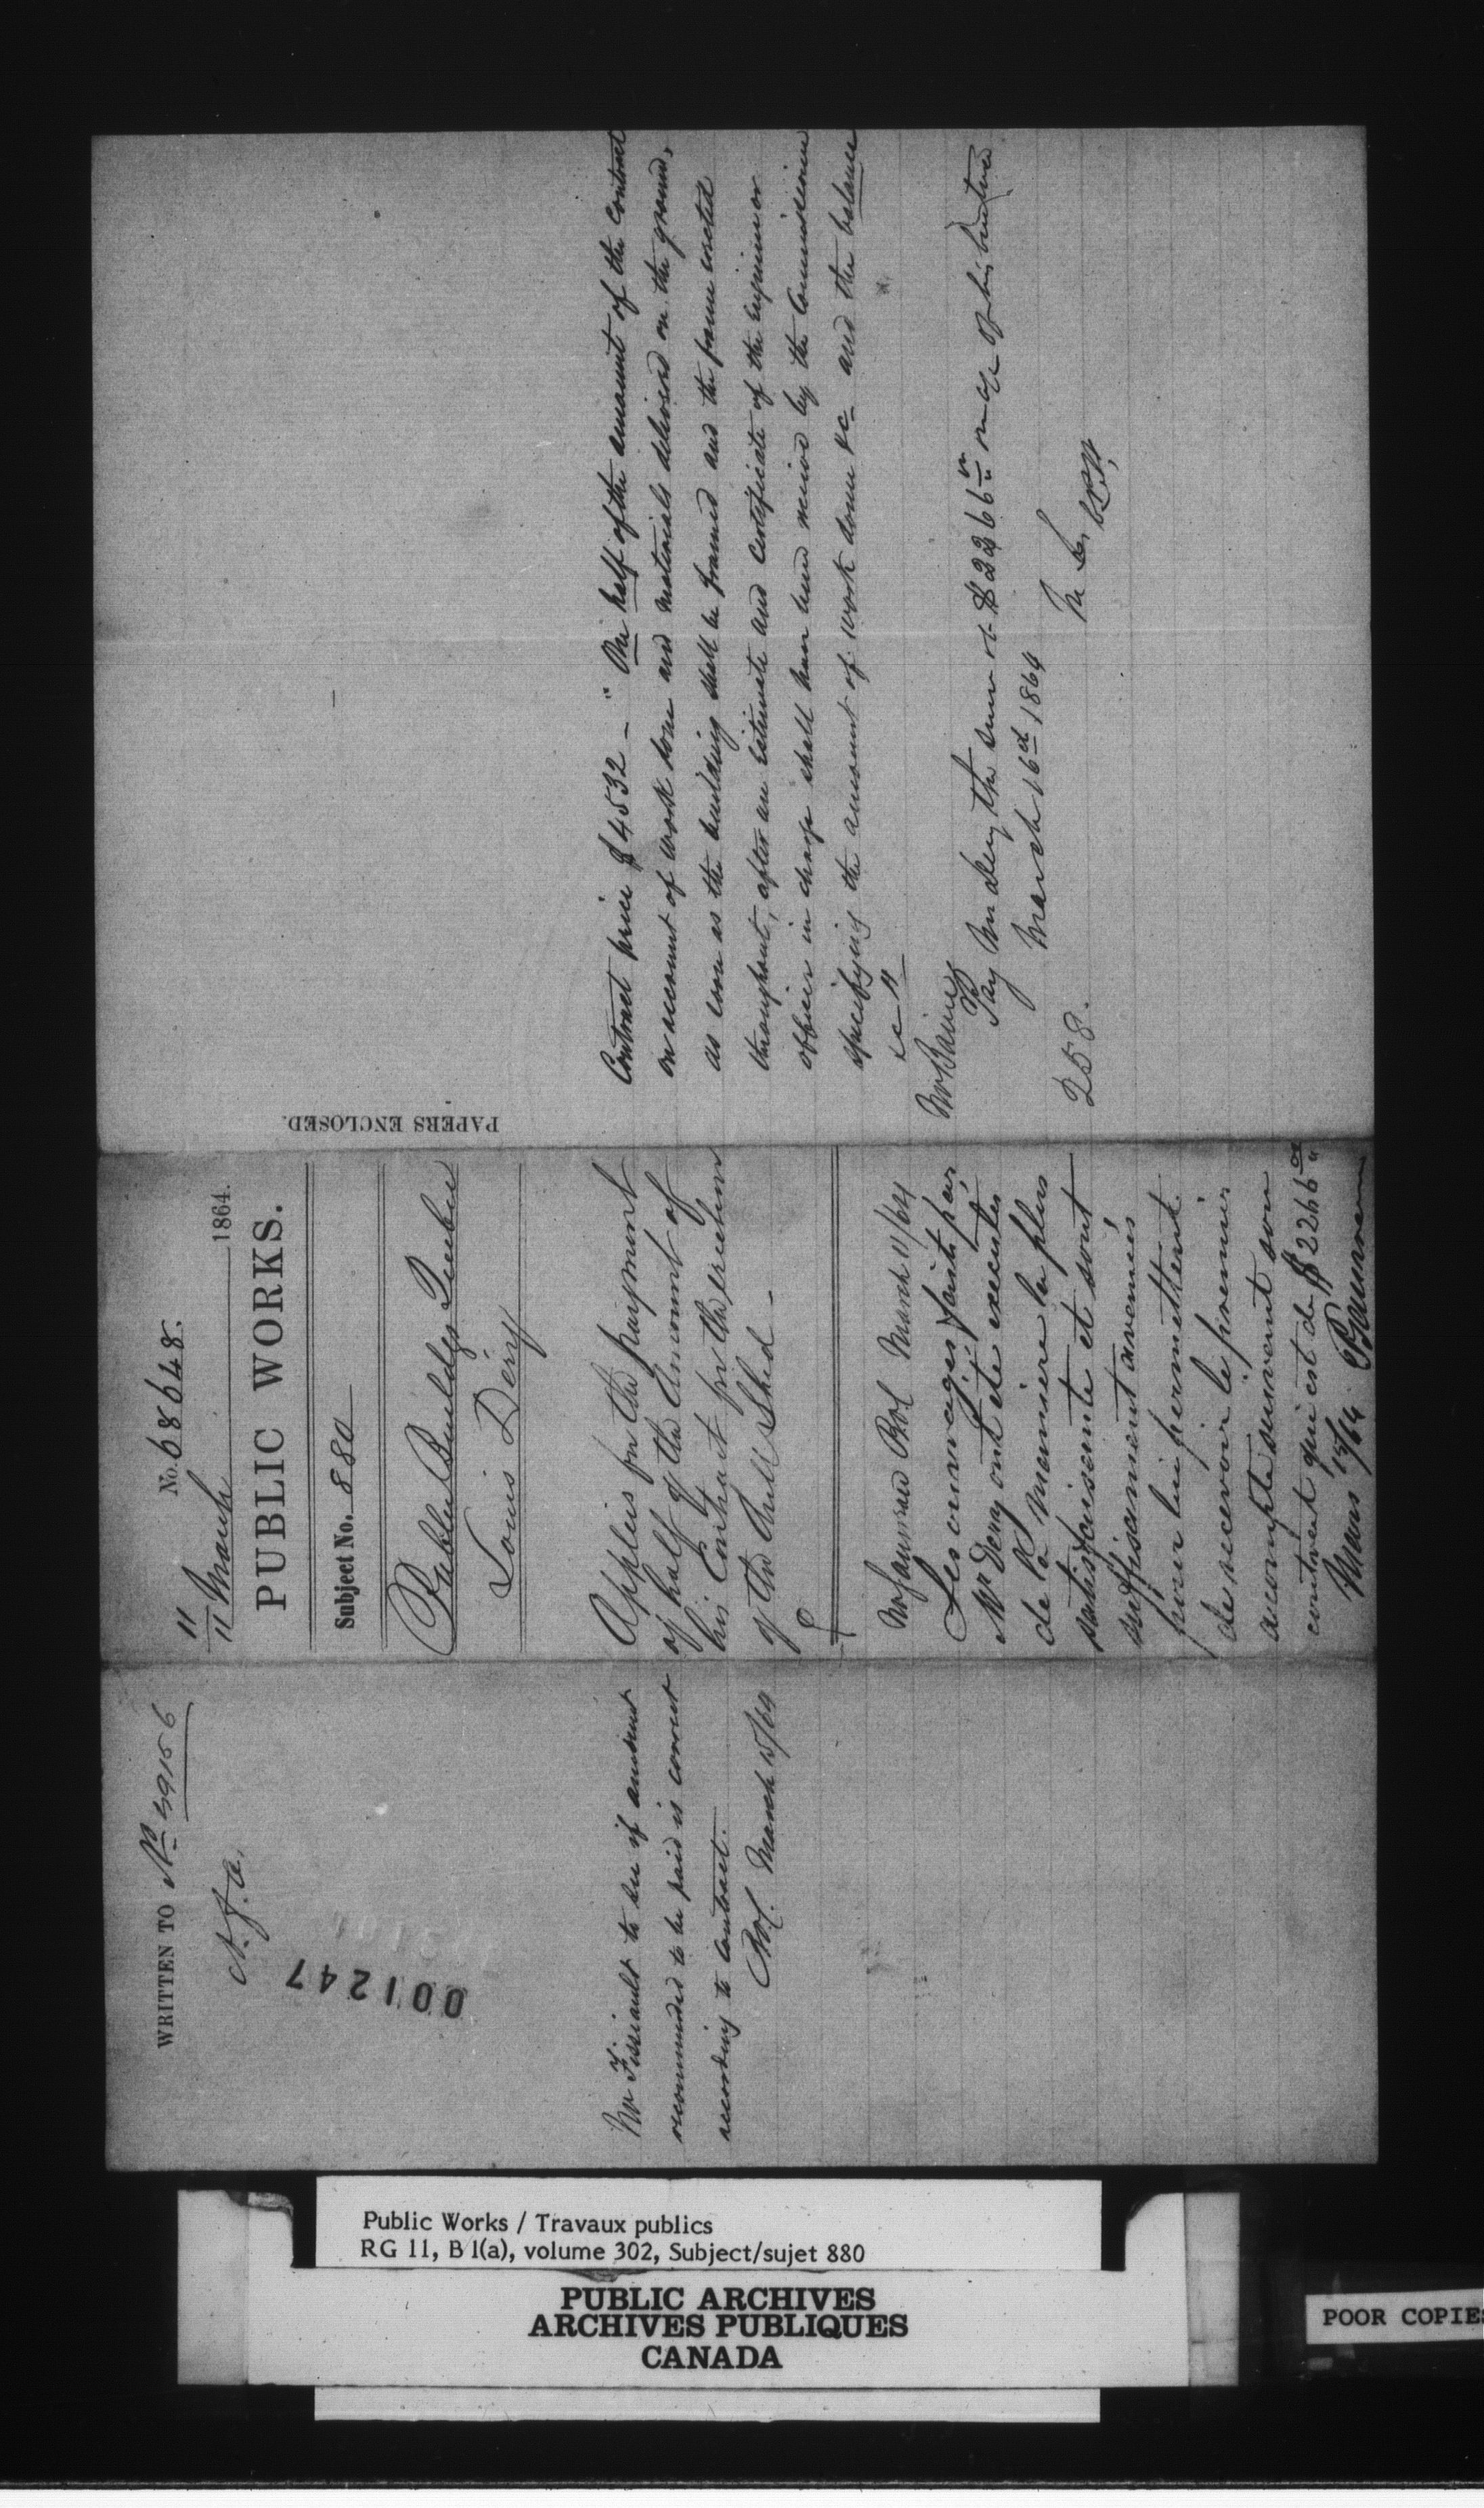 WRITTEN TO No 59156
001247
Mr Fissiault to see if amount
recommended to be paid is correct
according to contract.
March 15/64
No. 68648.
11
11 March 1864.
PUBLIC WORKS.
Subject No. 880
Public Buildgs Quebec
Louis Dery
Applies for the payment
of half of the Amount of
his Contract for the erection
of the Shed
March 11/64
Les ouvrages faits par
Mr Dery ont été executés
de la manière la plus
satisfaisante et sont
suffisamment avancés
pour lui permettent
de recevoir le premier
accompte suivant son
contrat qui est de $2266 00
Mars 15/64
PAPERS ENCLOSED.
Contract price $4532 - "One half of the amount of the contract
on account of work done and materials delivered on the ground,
as soon as the building shall be framed and the frame erected
throughout, after an estimate and certificate of the engineer or
officer in charge shall have been received by the Commissioner
specifying the amount of work done &c and the balance
&c"
Mr Baine
Pay Mr Dery the sum of $2266
March 16 1864
258.
Public Works / Travaux publics
RG 11, B 1(a), volume 302, Subject/sujet 880
PUBLIC ARCHIVES
ARCHIVES PUBLIQUES
CANADA
POOR COPIES